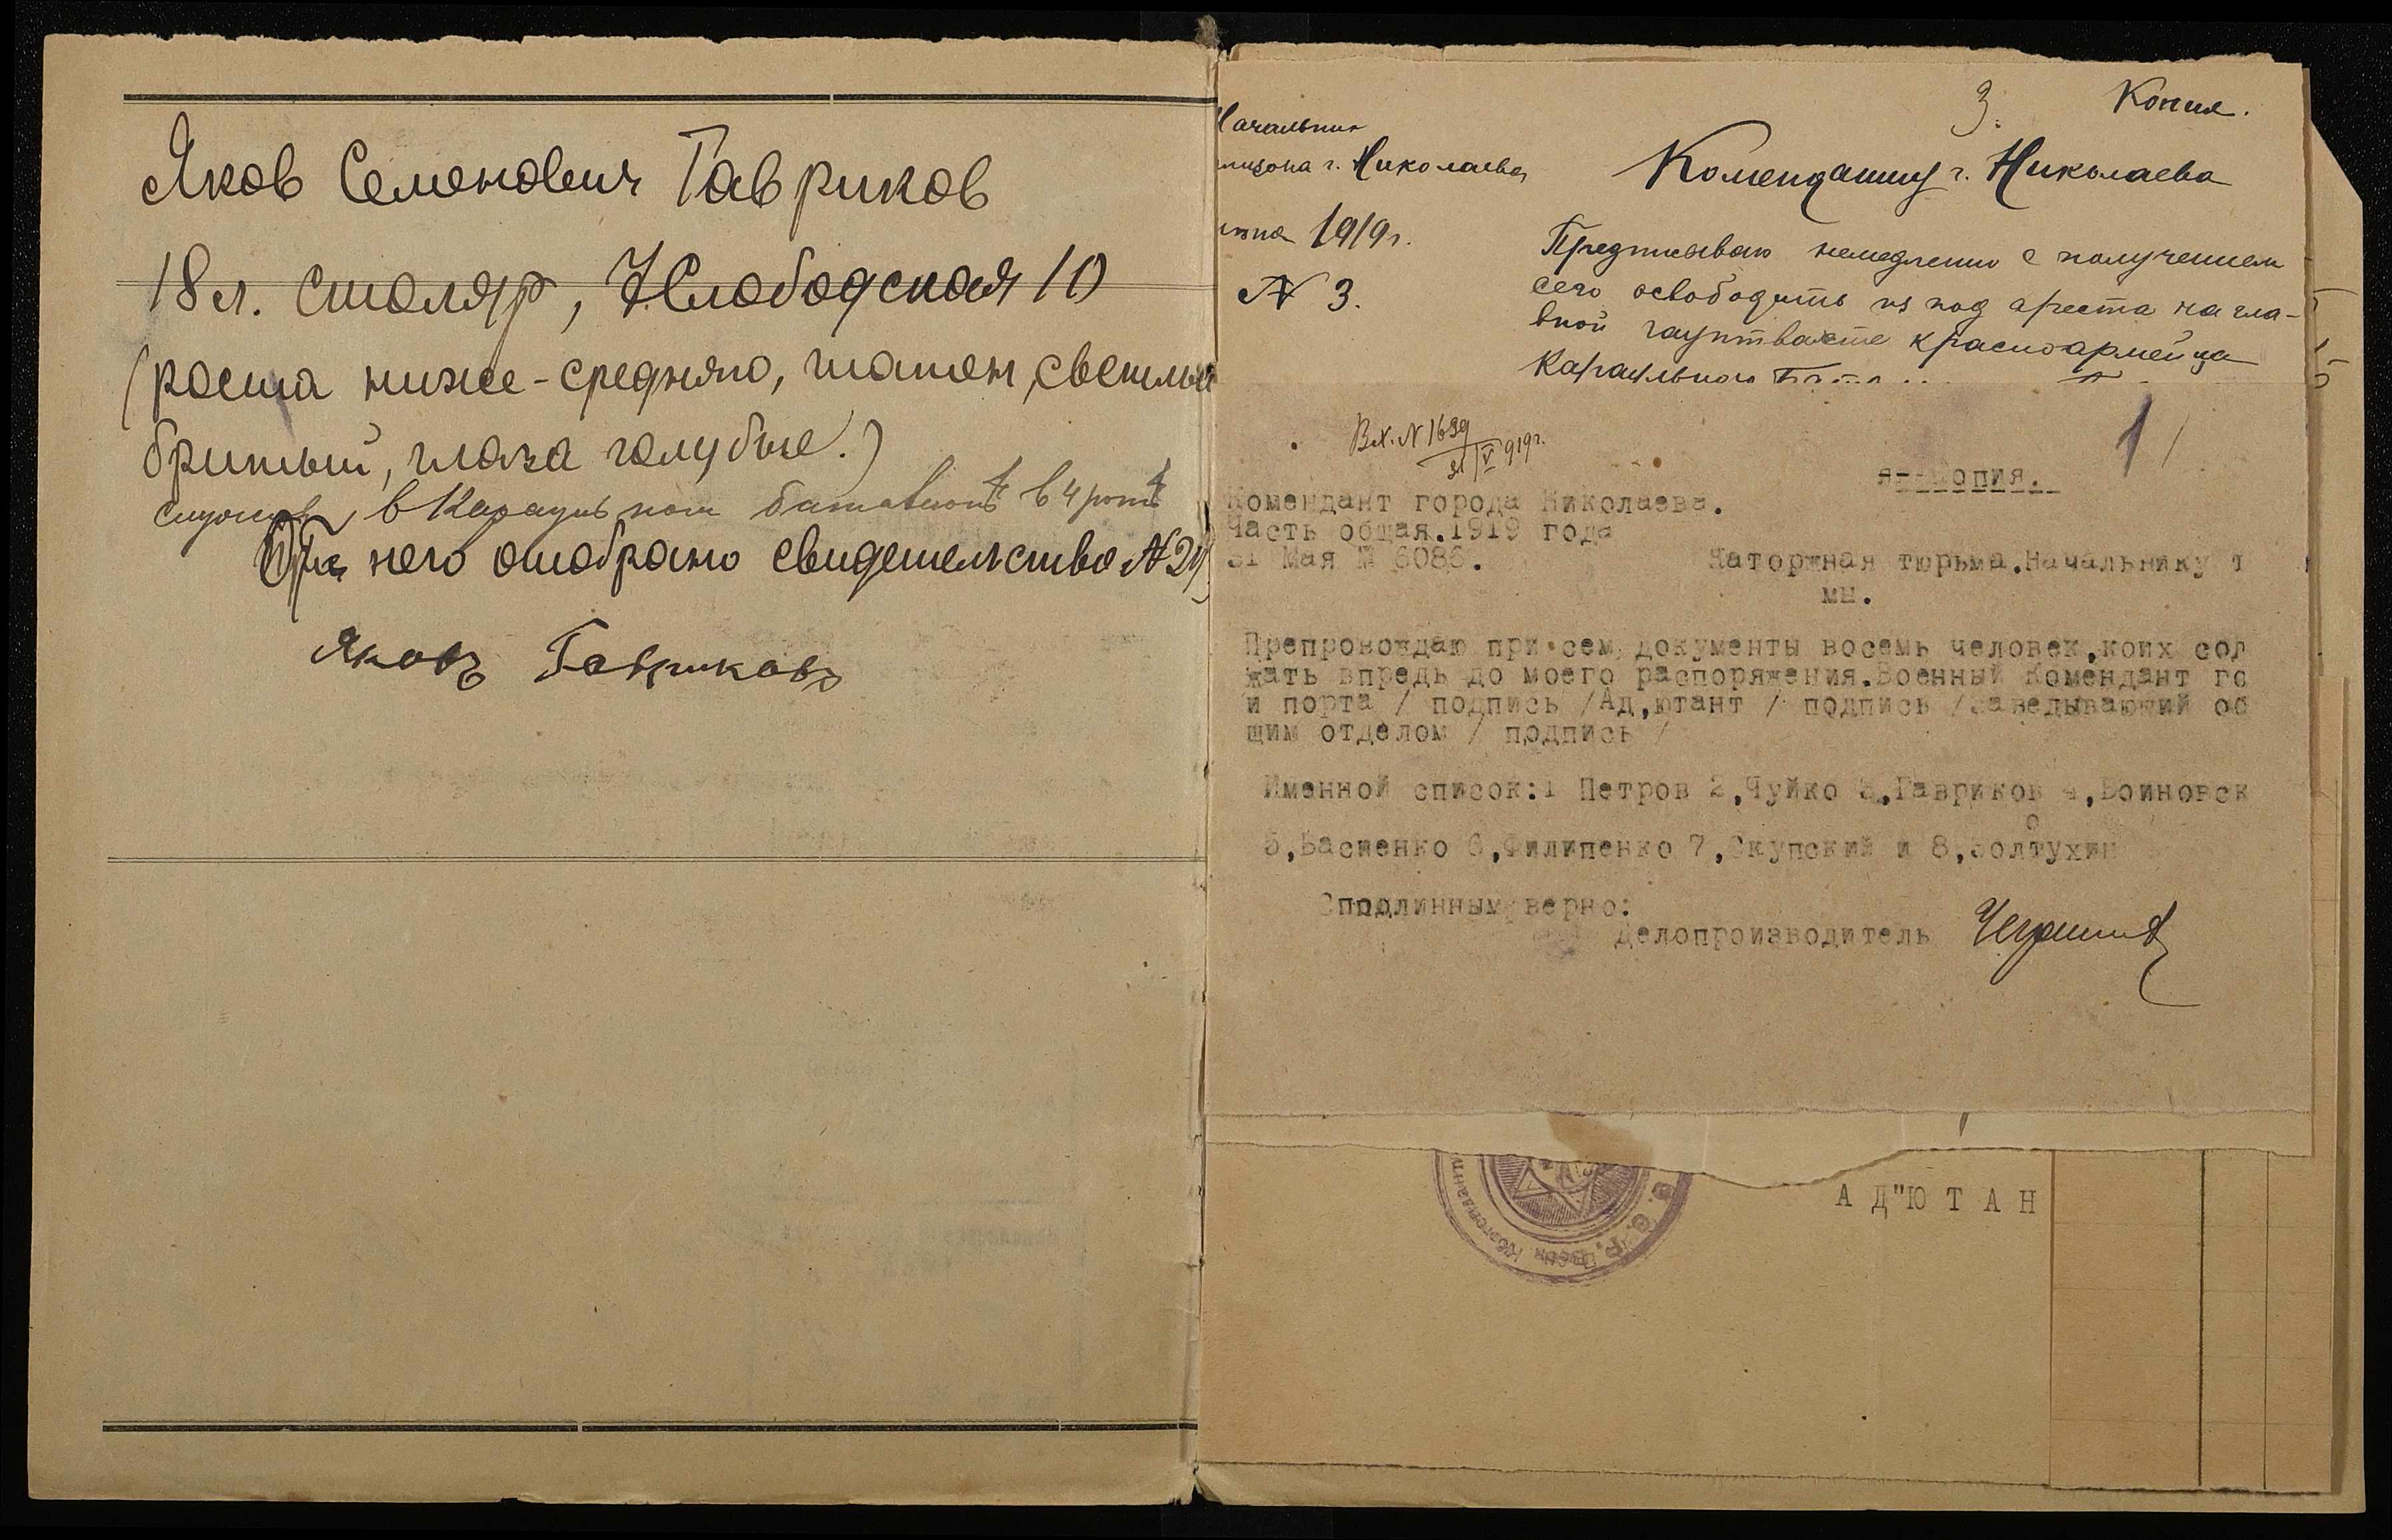 Яков Семенович Гавриков
18 л. столяр, 7 Слободская 10
(роста ниже-средняго, шатен, светлый
бритый, глаза голубые.)
служил в Караульном баталионѣ в 4 ротѣ
От него отобрано свидетельство №
Яковъ Гавриковъ
3.
Копия.
Начальник
г. Николаева
1919 г.
№ 3.
Коменданту г. Николаева
Предписываю немедленно с получением
сего освободить из под ареста на гла-
вной гауптвахте красноармейца
Караульного
Вх. № 1639
31/V 919 г.
1
Копия.
Комендант города Николаева.
Часть общая.1919 года
31 Мая № 6086.
Каторжная тюрьма.Начальнику т
мы.
Препровождаю при сем документы восемь человек,коих сод
жать впредь до моего распоряжения.Военный Комендант го
и порта / подпись /Ад,ютант / подпись /Заведывающий об
щим отделом / подпись /
Именной список:1 Петров 2,Чуйко 3,Гавриков 4,Войновск
5,Васиенко 6,Филипенко 7,Скупский и 8,Золтухин
Сподлинным верно:
Делопроизводитель
С. Р. Воен
АД"ЮТАН